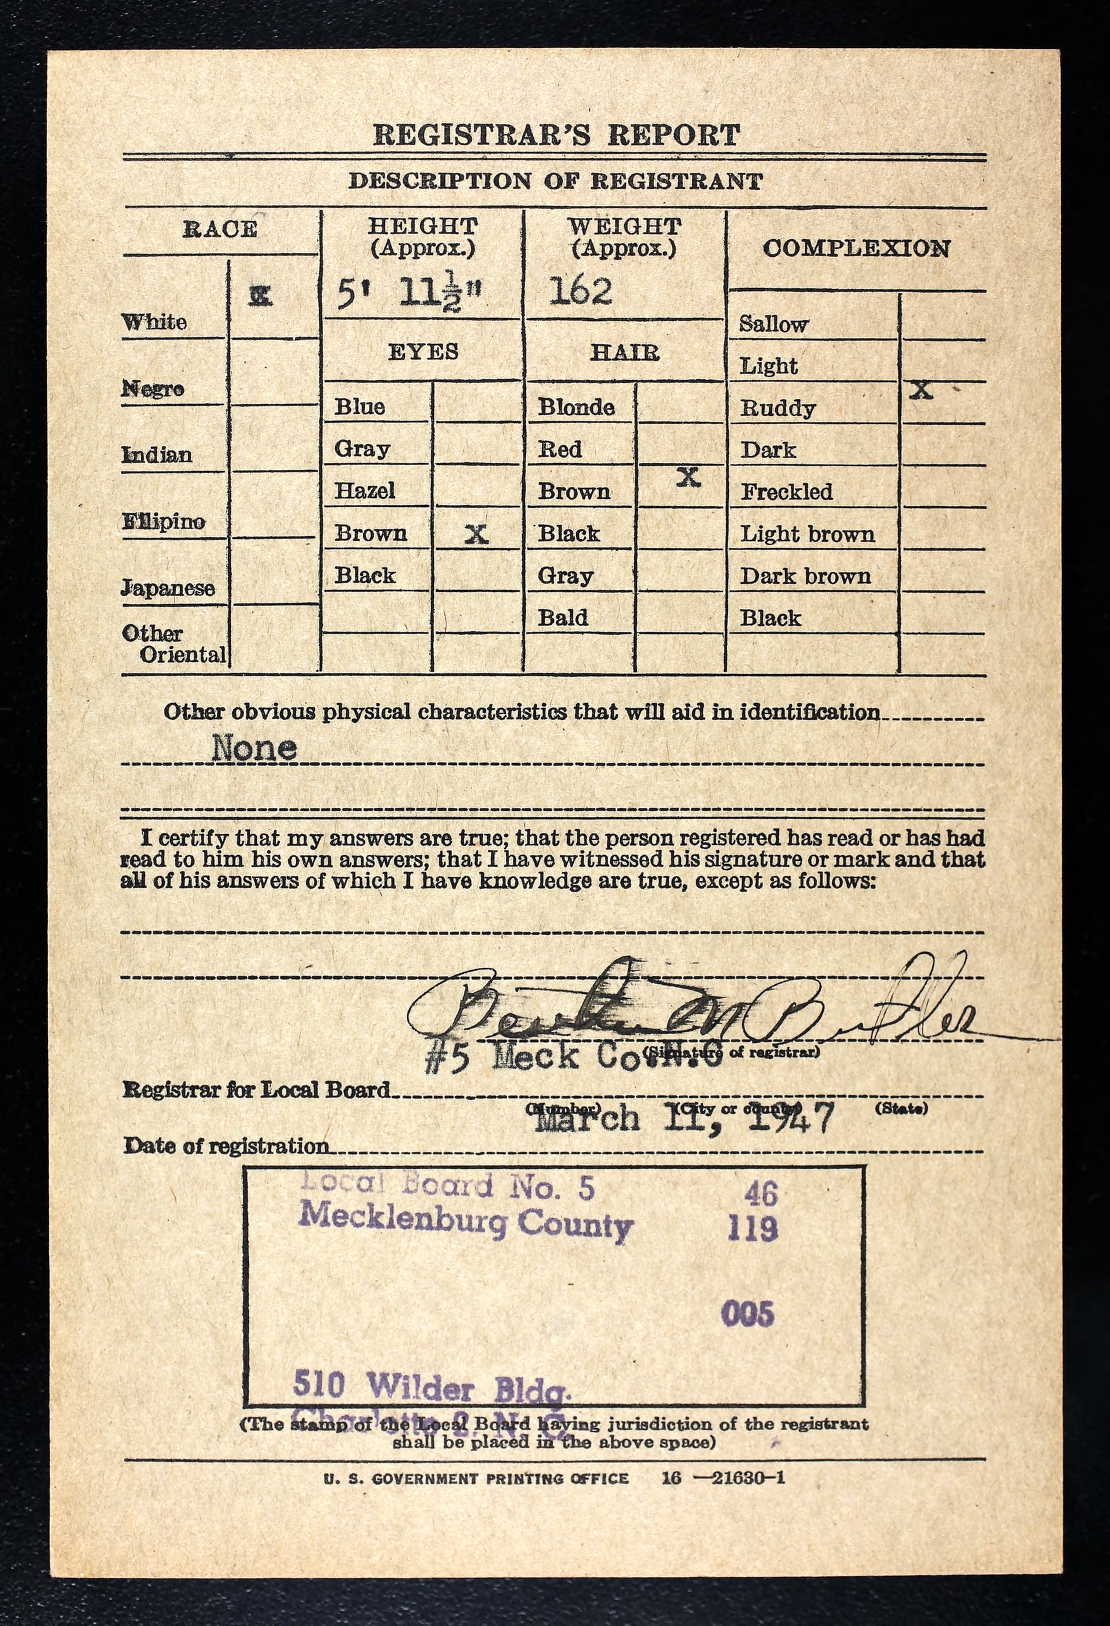 REGISTRAR'S REPORT
DESCRIPTION OF REGISTRANT
RACE
HEIGHT
(Approx.)
WEIGHT
(Approx.)
COMPLEXION
5' 11½"
162
White
Sallow
EYES
HAIR
Light
X
Negro
Blue
Blonde
Ruddy
Indian
Gray
Red
Dark
X
Hazel
Brown
Freckled
Filipino
Brown X
Black
Light brown
Japanese
Black
Gray
Dark brown
Other
Oriental
Bald
Black
Other obvious physical characteristics that will aid in identification
None
I certify that my answers are true; that the person registered has read or has had
read to him his own answers; that I have witnessed his signature or mark and that
all of his answers of which I have knowledge are true, except as follows:
M Butler
#5 Meck Co.N.C
(Signature of registrar)
Registrar for Local Board
(Number) (City or county) (State)
March 11, 1947
Date of registration
Local Board No. 5 46
Mecklenburg County 119
005
510 Wilder Bldg.
Charlotte 2, N. C.
(The stamp of the Local Board having jurisdiction of the registrant
shall be placed in the above space)
U. S. GOVERNMENT PRINTING OFFICE 16—21630-1